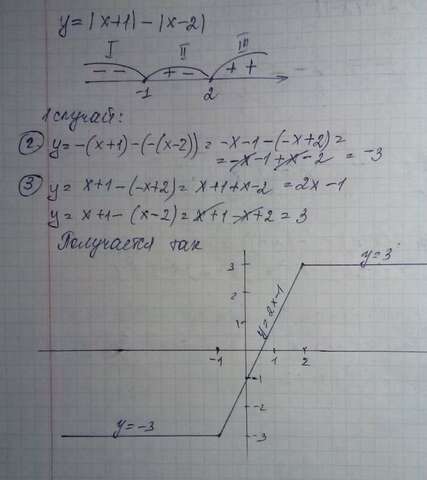 y=|x+1|-|x-2|
I II III
-- +- ++
-1 2
1 случай:
② y=-(x+1)-(-(x-2))=-x-1-(-x+2)=
=-x-1+x-2 = -3
③ y= x+1-(-x+2)= x+1+x-2 =2x-1
y= x+1-(x-2)=x+1-x+2=3
Получается так
3 y=3
2
1 y=2x-1
-1 1 2
-1
-2
y=-3 -3